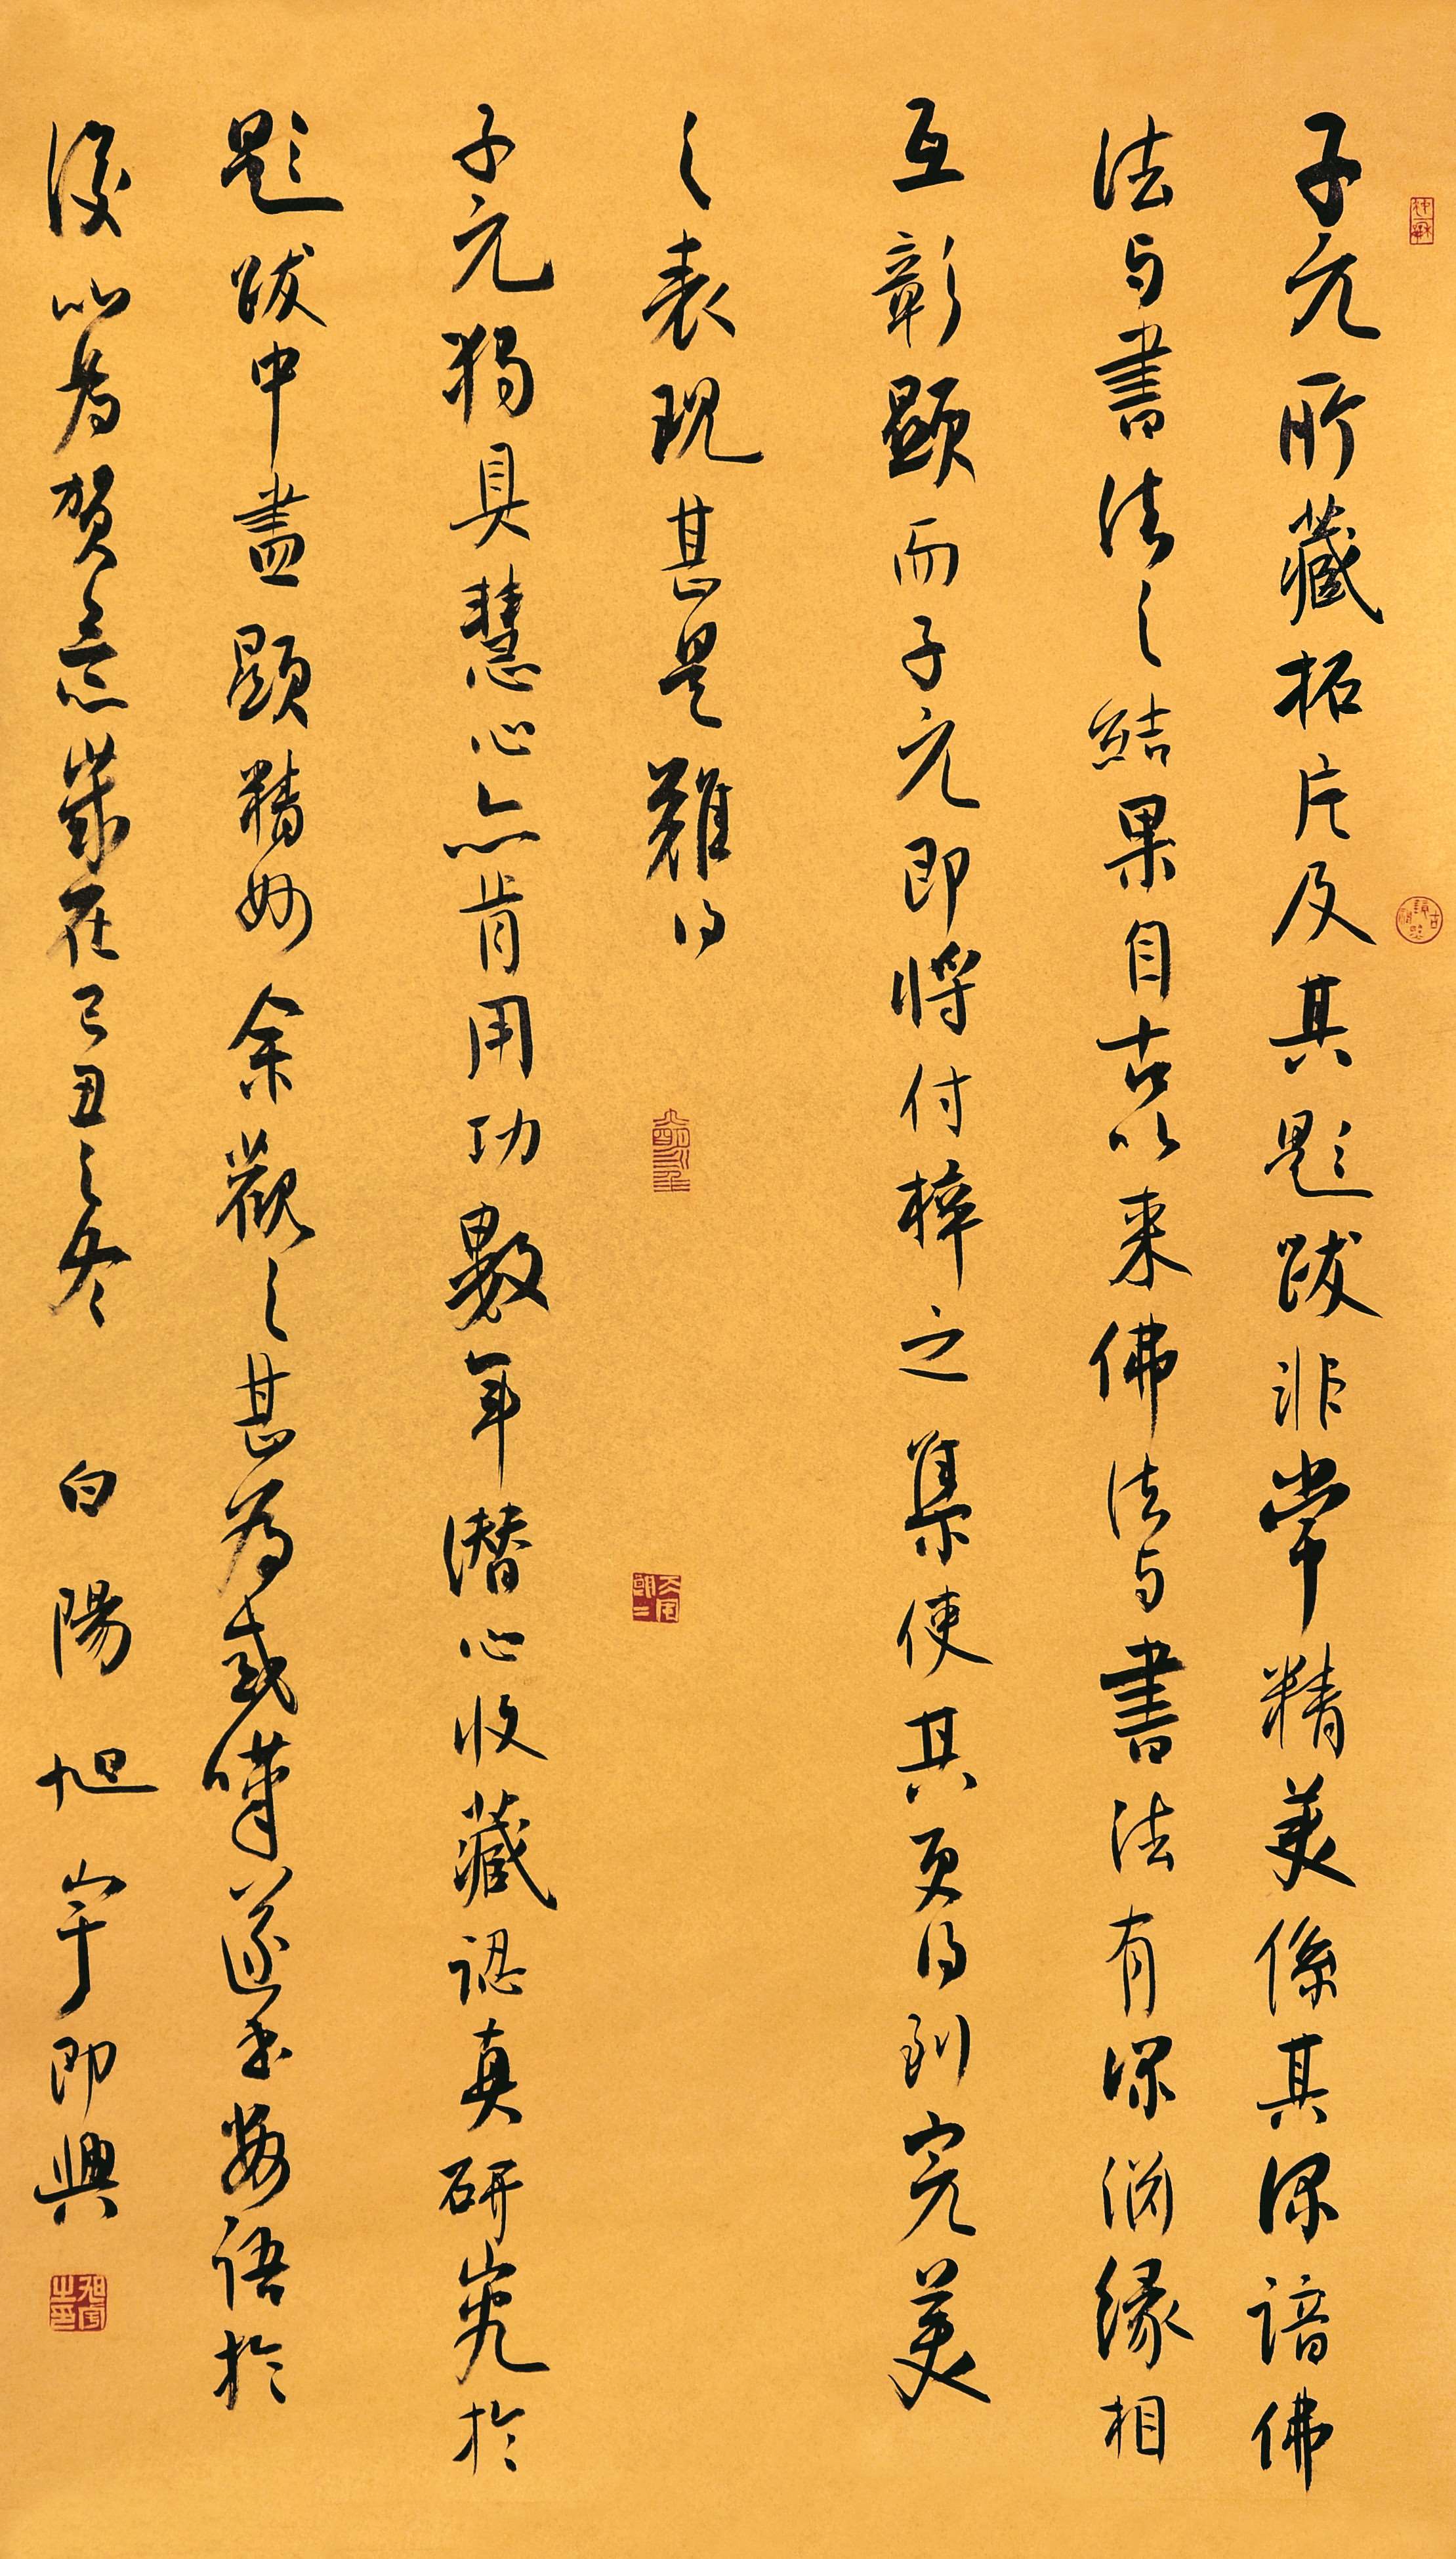 子元所藏拓片及其題跋非常精美係其深諳佛
法与書法之結果自古以来佛法与書法有深淵緣相
互彰顯而子元即將付梓之集使其更得到完美
之表現甚是難得
子元獨具慧心亦肯用功數年潛心收藏認真研究於
題跋中盡顯精妙余觀之甚為感嘆遂書數語於
後以為賀意歲在己丑之冬 白陽旭宇即興